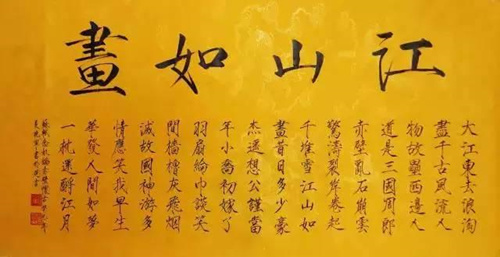 江山如畫
大江東去浪淘
盡千古風流人
物故壘西邊人
道是三國周郎
赤壁亂石崩雲
驚濤裂岸卷起
千堆雪江山如
畫昔日多少豪
杰遙想公謹當
年小喬初嫁了
羽扇綸巾談笑
間檣櫓灰飛烟
滅故國神游多
情應笑我早生
華發人間如夢
一杯還酹江月
蘇軾念奴嬌赤壁懷古